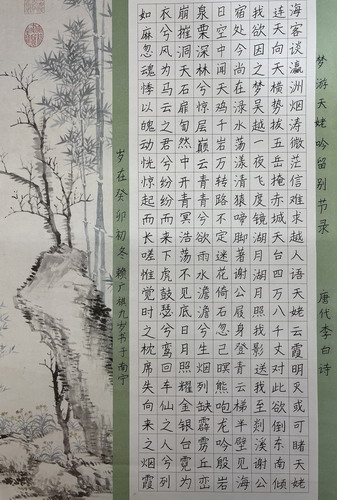 梦游天姥吟留别节录 唐代李白诗
海客谈瀛洲烟涛微茫信难求越人语天姥云霞明灭或可睹天姥
连天向天横势拔五岳掩赤城天台四万八千丈对此欲倒东南倾
我欲因之梦吴越一夜飞度镜湖月湖月照我影送我至剡溪谢公
宿处今尚在渌水荡漾清猿啼脚著谢公屐身登青云梯半壁见海
日空中闻天鸡千岩万转路不定迷花倚石忽已暝熊咆龙吟殷岩
泉栗深林兮惊层巅云青青兮欲雨水澹澹兮生烟列缺霹雳丘峦
崩摧洞天石扉訇然中开青冥浩荡不见底日月照耀金银台霓为
衣兮风为马云之君兮纷纷而来下虎鼓瑟兮鸾回车仙之人兮列
如麻忽魂悸以魄动恍惊起而长嗟惟觉时之枕席失向来之烟霞
岁在癸卯初冬 赖广祺九岁书于南宁